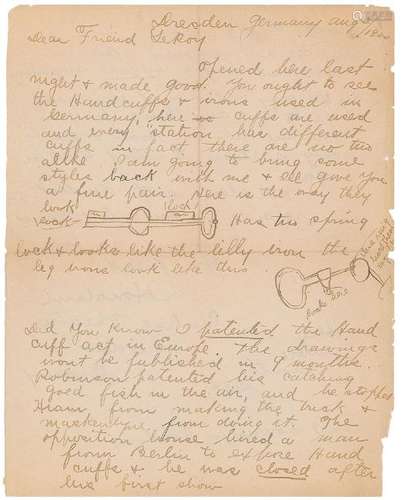 Dresden Germany Aug
Dear Friend LeRoy
Opened here last
night & made good. You ought to see
the Handcuffs & irons used in
Germany, here cuffs are used
and every station has different
cuffs in fact there are no two
alike I am going to bring some
styles back with me & give you
a fine pair. Here is the way they
look
lock
lock
Has two spring
lock & looks like the lilly iron the
leg irons look like this
looks here
Did You Know I patented the Hand
cuff act in Europe The drawings
wont be published in 9 months.
Robinson patented his catching
goed fish in the air, and he stopped
from making the trick &
from doing it. The
opposition house hired a man
from Berlin to expose Hand
cuffs & he was closed after
his first show